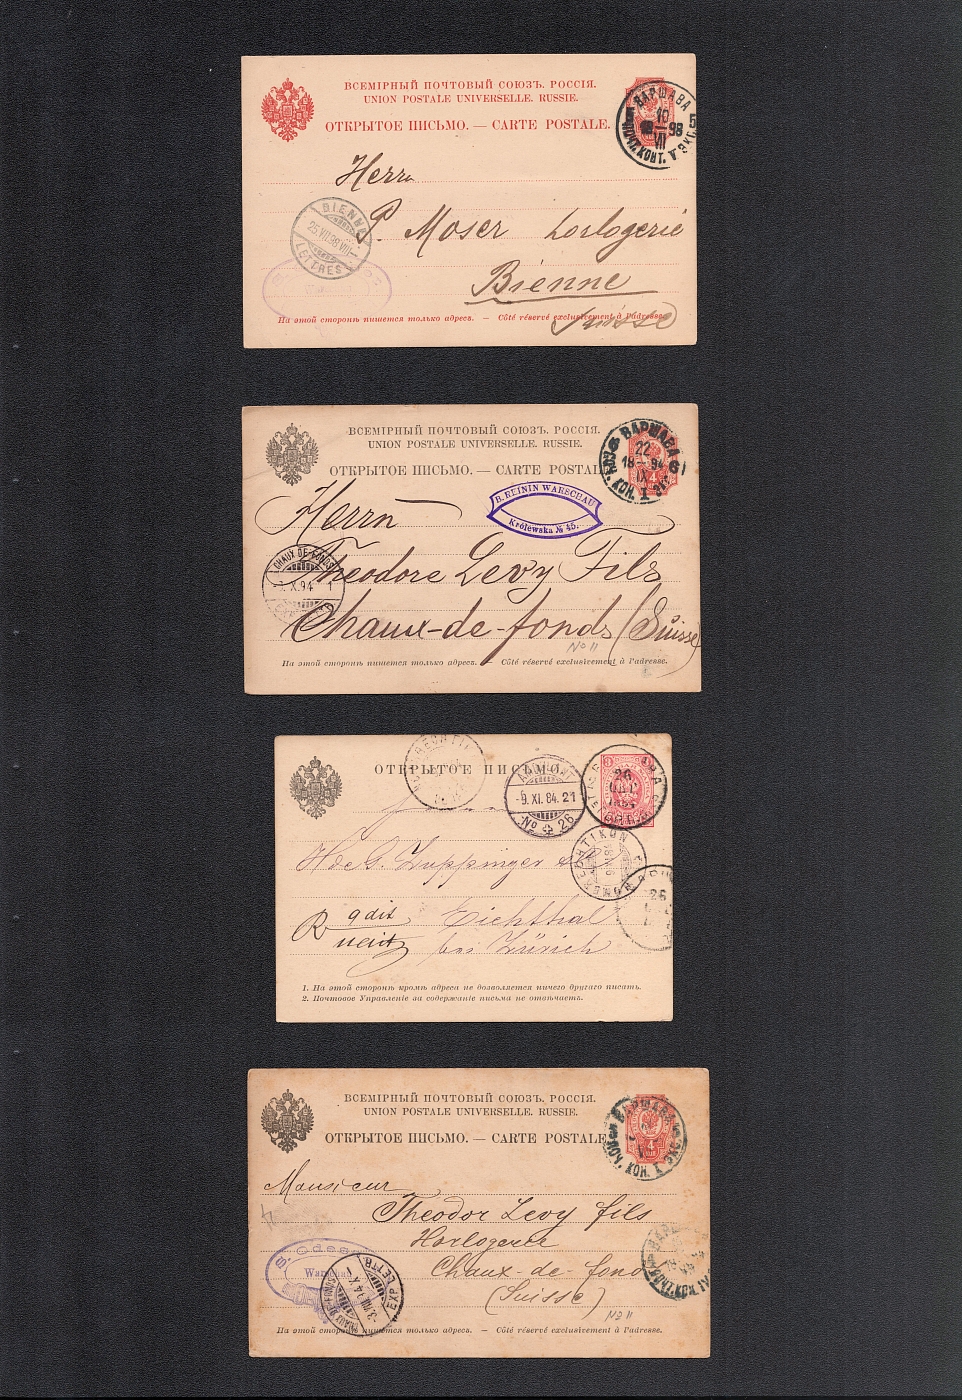 ВСЕМІРНЫЙ ПОЧТОВЫЙ СОЮЗЪ. РОССІЯ.
UNION POSTALE UNIVERSELLE. RUSSIE.
ОТКРЫТОЕ ПИСЬМО. — CARTE POSTALE.
ВАРШАВА
Herrn
P. Moser horlogerie
Bienne
Suisse
BIENNE
LETTRES
На этой сторонѣ пишется только адресъ. — Côté réservé exclusivement à l'adresse.
ВСЕМІРНЫЙ ПОЧТОВЫЙ СОЮЗЪ. РОССІЯ.
UNION POSTALE UNIVERSELLE. RUSSIE.
ОТКРЫТОЕ ПИСЬМО. — CARTE POSTAL
ВАРШАВА
22
18—94
IX
B. REININ WARSCHAU
Królewska № 45.
Herrn
Theodore Levy Fils
Chaux-de-fonds (Suisse)
CHAUX-DE-FONDS
X.94
No 11
На этой сторонѣ пишется только адресъ. — Côté réservé exclusivement à l'adresse.
ОТКРЫТОЕ ПИСЬМО.
-9.XI.84.21
No 26
26
ОКТ
Zuppinger
R
Eichthal
bei Zürich
26
1. На этой сторонѣ кромѣ адреса не дозволяется ничего другаго писать.
2. Почтовое Управленіе за содержаніе письма не отвѣчаетъ.
ВСЕМІРНЫЙ ПОЧТОВЫЙ СОЮЗЪ. РОССІЯ.
UNION POSTALE UNIVERSELLE. RUSSIE.
ОТКРЫТОЕ ПИСЬМО. — CARTE POSTALE
ВАРШАВА
4
Monsieur
Theodor Levy fils
Horlogerie
Chaux-de-fond
(Suisse)
S. Odes
Warschau
CHAUX-DE-FONDS
EXP. LETTR.
No 11
На этой сторонѣ пишется только адресъ. — Côté réservé exclusivement à l'adresse.